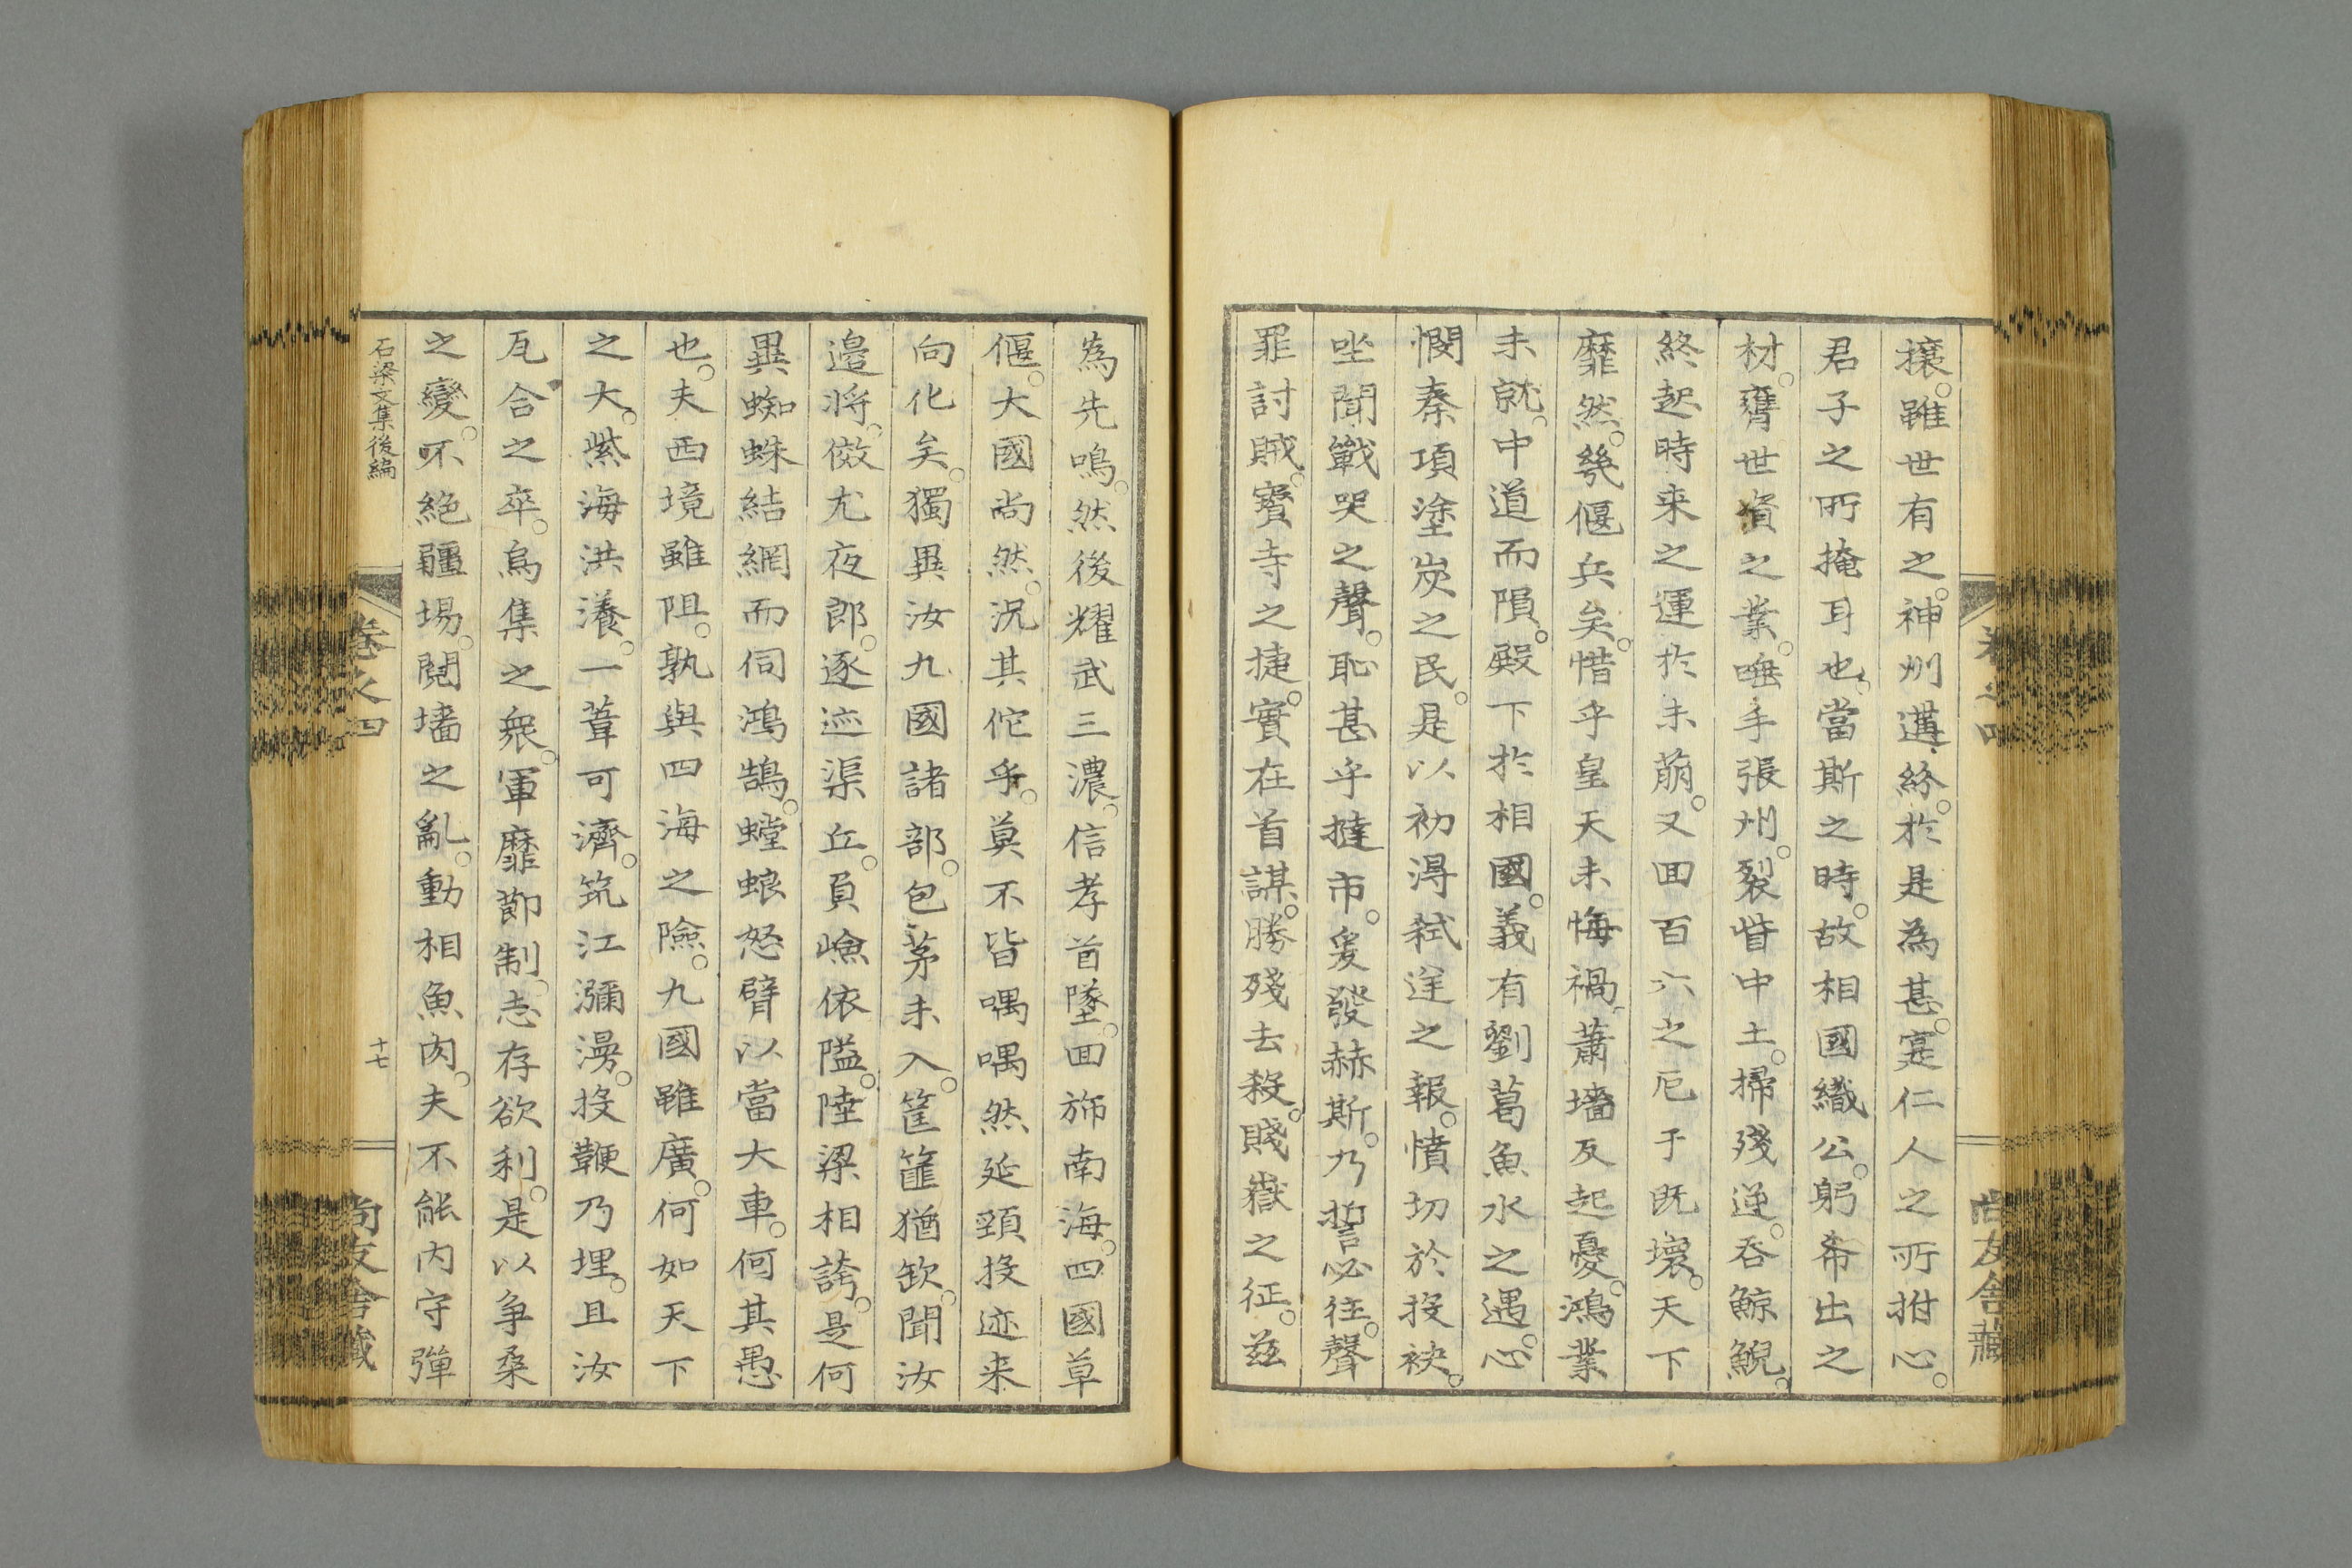 攘。雖世有之。神州遘紛。於是為甚。寔仁人之所拊心。
君子之所掩耳也。當斯之時。故相國織公。躬希出之
材。膺世資之業。唾手張州。裂眥中土。掃殘逆。吞鯨鯢。
終起時来之運於未萌。又回百六之厄于既壞。天下
靡然。幾偃兵矣。惜乎皇天未悔禍。蕭墻反起憂。鴻業
未就。中道而隕。殿下於相國。義有劉葛魚水之遇。心
憫秦項塗炭之民。是以初得弒逆之報。憤切於投袂。
坐聞戰哭之聲。恥甚乎撻市。爰發赫斯。乃誓必往。聲
罪討賊。寶寺之捷。實在首謀。勝殘去殺。賤嶽之征。茲
為先鳴。然後耀武三濃。信孝首墜。回旆南海。四國草
偃。大國尚然。況其佗乎。莫不皆喁喁然延頸投迹来
向化矣。獨異汝九國諸部。包茅未入。筐篚猶缺。聞汝
邉將。傚尤夜郎。逐迹渠丘。負嶮依隘。陸梁相誇。是何
異蜘蛛結網而伺鴻鵠。螳蜋怒臂以當大車。何其愚
也。夫西境雖阻。孰與四海之險。九國雖廣。何如天下
之大。紫海洪瀁。一葦可濟。筑江瀰漫。投鞭乃埋。且汝
瓦合之卒。烏集之衆。軍靡節制。志存欲利。是以争桑
之變。不絶疆場。鬩墻之亂。動相魚肉。夫不能内守彈
石梁文集後編
卷之四
十七
尚友舎藏